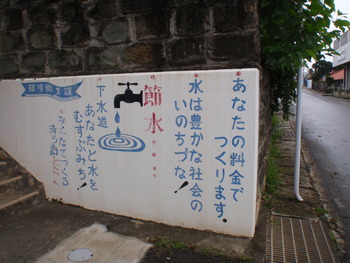 あなたの料金で
つくります。
水は豊かな社会の
いのちづな!
節水
下水道
あなたと水を
むすぶみち!
みんなでつくる
環境衛生課